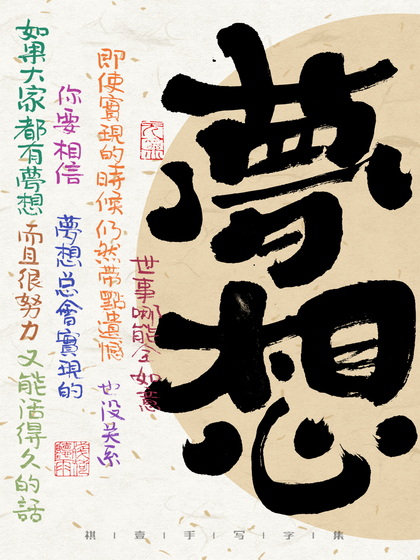 夢想
如果大家都有夢想而且很努力又能活得久的話
你要相信夢想总會實現的
即使實現的時候仍然帶點遺憾也没关系
世事哪能全如意
祺|壹|手|写|字|集